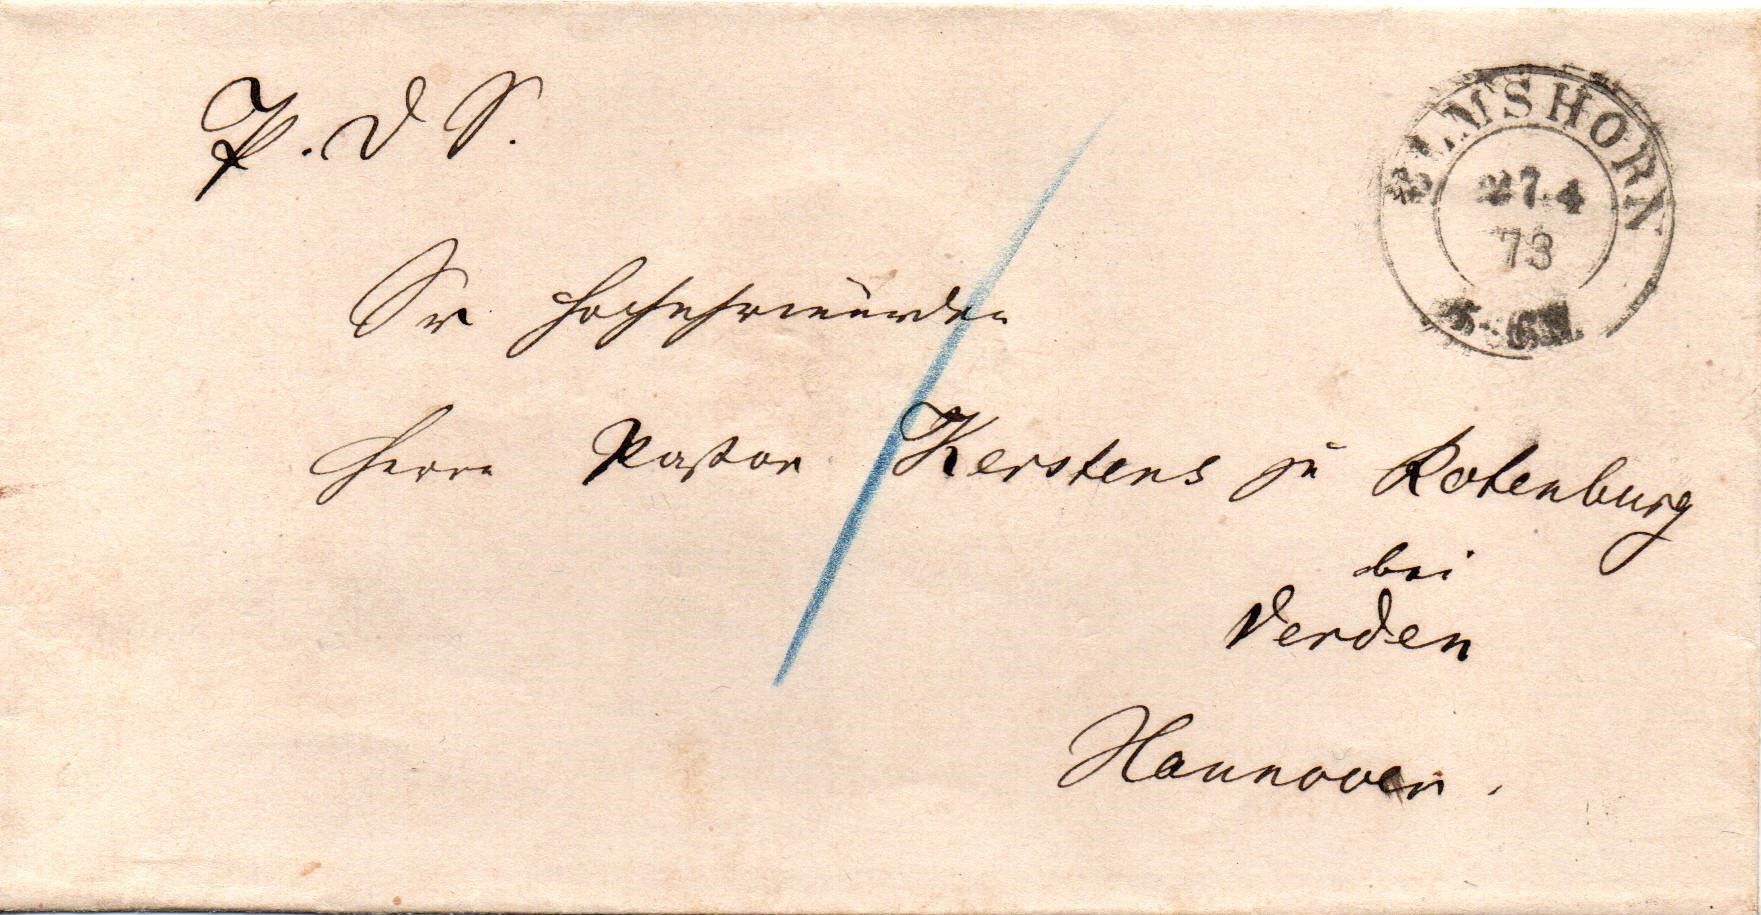 P. d S.
ELMSHORN
27.4
73
5-6N.
Sr Hochehrwürden
Herrn Pastor Kerstens zu Rotenburg
bei
Verden
Hannover.